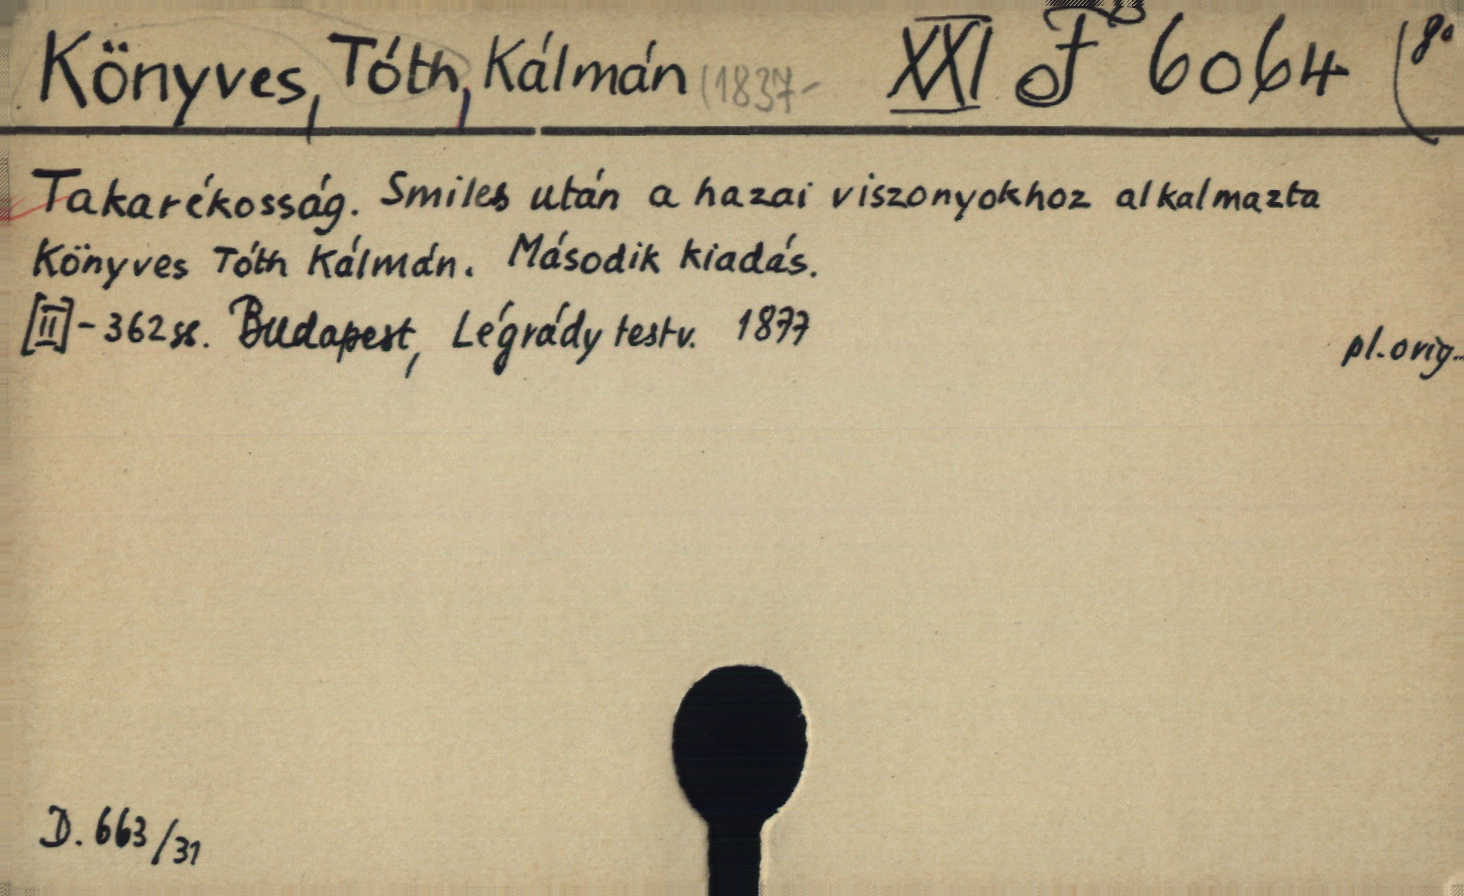 Könyves, Tóth, Kálmán (1837- XXI J 6064 (8°
Takarékosság. Smiles után a hazai viszonyokhoz alkalmazta
Könyves Tóth Kálmán. Második kiadás.
[II]-362 sz. Budapest, Légrády testv. 1877
pl. orig..
D. 663/31